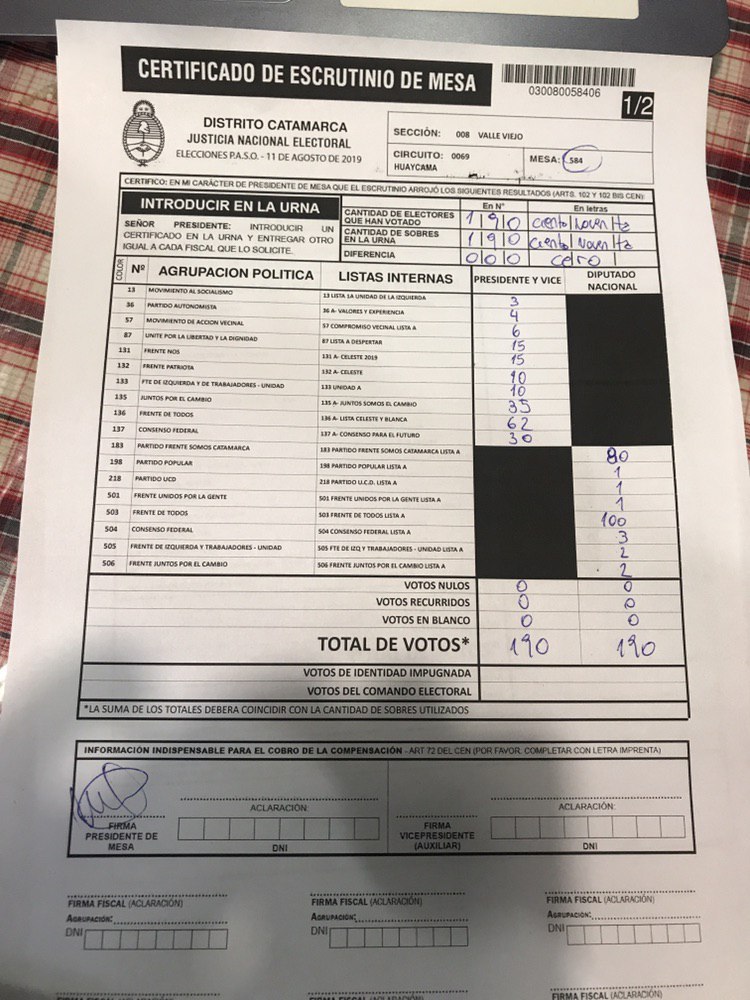 CERTIFICADO DE ESCRUTINIO DE MESA
030080058406
1/2
DISTRITO CATAMARCA
JUSTICIA NACIONAL ELECTORAL
ELECCIONES P.A.S.O. - 11 DE AGOSTO DE 2019
SECCIÓN: 008 VALLE VIEJO
CIRCUITO: 0069 HUAYCAMA
MESA: 584
CERTIFICO: EN MI CARÁCTER DE PRESIDENTE DE MESA QUE EL ESCRUTINIO ARROJÓ LOS SIGUIENTES RESULTADOS (ARTS. 102 Y 102 BIS CEN):
INTRODUCIR EN LA URNA
SEÑOR PRESIDENTE: INTRODUCIR UN
CERTIFICADO EN LA URNA Y ENTREGAR OTRO
IGUAL A CADA FISCAL QUE LO SOLICITE.
En Nº En letras
CANTIDAD DE ELECTORES QUE HAN VOTADO 190 ciento Noventa
CANTIDAD DE SOBRES EN LA URNA 190 ciento Noventa
DIFERENCIA 000 cero
COLOR Nº AGRUPACION POLITICA LISTAS INTERNAS PRESIDENTE Y VICE DIPUTADO NACIONAL
13 MOVIMIENTO AL SOCIALISMO 13 LISTA LA UNIDAD DE LA IZQUIERDA 3
36 PARTIDO AUTONOMISTA 36 A- VALORES Y EXPERIENCIA 4
57 MOVIMIENTO DE ACCION VECINAL 57 COMPROMISO VECINAL LISTA A 6
87 UNITE POR LA LIBERTAD Y LA DIGNIDAD 87 LISTA A DESPERTAR 15
131 FRENTE NOS 131 A- CELESTE 2019 15
132 FRENTE PATRIOTA 132 A- CELESTE 10
133 FTE DE IZQUIERDA Y DE TRABAJADORES - UNIDAD 133 UNIDAD A 10
135 JUNTOS POR EL CAMBIO 135 A- JUNTOS SOMOS EL CAMBIO 35
136 FRENTE DE TODOS 136 A- LISTA CELESTE Y BLANCA 62
137 CONSENSO FEDERAL 137 A- CONSENSO PARA EL FUTURO 30
183 PARTIDO FRENTE SOMOS CATAMARCA 183 PARTIDO FRENTE SOMOS CATAMARCA LISTA A 80
198 PARTIDO POPULAR 198 PARTIDO POPULAR LISTA A 1
218 PARTIDO UCD 218 PARTIDO U.C.D. LISTA A 1
501 FRENTE UNIDOS POR LA GENTE 501 FRENTE UNIDOS POR LA GENTE LISTA A 1
503 FRENTE DE TODOS 503 FRENTE DE TODOS LISTA A 100
504 CONSENSO FEDERAL 504 CONSENSO FEDERAL LISTA A 3
505 FRENTE DE IZQUIERDA Y TRABAJADORES - UNIDAD 505 FTE DE IZQ Y TRABAJADORES - UNIDAD LISTA A 2
506 FRENTE JUNTOS POR EL CAMBIO 506 FRENTE JUNTOS POR EL CAMBIO LISTA A 2
VOTOS NULOS 0 0
VOTOS RECURRIDOS 0 0
VOTOS EN BLANCO 0 0
TOTAL DE VOTOS* 190 190
VOTOS DE IDENTIDAD IMPUGNADA
VOTOS DEL COMANDO ELECTORAL
*LA SUMA DE LOS TOTALES DEBERA COINCIDIR CON LA CANTIDAD DE SOBRES UTILIZADOS
INFORMACIÓN INDISPENSABLE PARA EL COBRO DE LA COMPENSACIÓN - ART 72 DEL CEN (POR FAVOR, COMPLETAR CON LETRA IMPRENTA)
ACLARACIÓN: ACLARACIÓN:
FIRMA PRESIDENTE DE MESA DNI FIRMA VICEPRESIDENTE (AUXILIAR) DNI
FIRMA FISCAL (ACLARACIÓN) FIRMA FISCAL (ACLARACIÓN) FIRMA FISCAL (ACLARACIÓN)
AGRUPACIÓN: AGRUPACIÓN: AGRUPACIÓN:
DNI DNI DNI
FIRMA FISCAL (ACLARACIÓN) FIRMA FISCAL (ACLARACIÓN) FIRMA FISCAL (ACLARACIÓN)